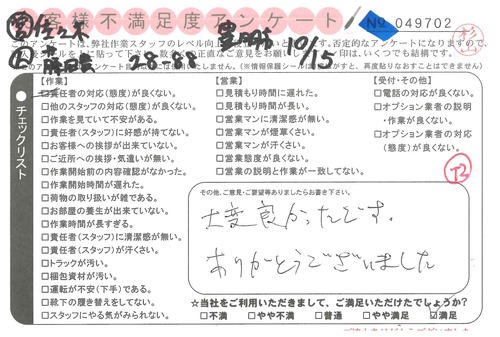 お客様不満足度アンケート
№ 049702
杉山
このアンケートは、弊社作業スタッフのレベル向上
否定的なアンケートになりますので、
印は、いくつでも結構です。
10/5
28-88
(※情報保護シール
がますと、再度貼りなおすことはできません)
チェックリスト
【作業】
□責任者の対応(態度)が良くない。
□他のスタッフの対応(態度)が良くない。
□作業を見ていて不安がある。
□責任者(スタッフ)に好感が持てない。
□お客様への挨拶が出来ていない。
□ご近所への挨拶・気遣いが無い。
□作業開始前の内容確認がなかった。
□作業開始時間が遅れた。
□荷物の取り扱いが雑である。
□お部屋の養生が出来ていない。
□作業時間が長すぎる。
□責任者(スタッフ)に清潔感が無い。
□責任者(スタッフ)が汗くさい。
□トラックが汚い。
□梱包資材が汚い。
□運転が不安(下手)である。
□靴下の履き替えをしてない。
□スタッフにやる気がみられない。
【営業】
□見積もり時間に遅れた。
□見積もり時間が長い。
□営業マンに清潔感が無い。
□営業マンが煙草くさい。
□営業マンが汗くさい。
□営業態度が良くない。
□営業の説明と作業が一致してない。
【受付・その他】
□電話の対応が良くない。
□オプション業者の説明
・作業が良くない。
□オプション業者の対応
(態度)が良くない。
その他、ご意見・ご要望等ありましたらお書き下さい。
大変良かったです。
ありがとうございました
☆当社をご利用いただきまして、ご満足いただけたでしょうか?
□不満 □やや不満 □普通 □やや満足 ☑満足